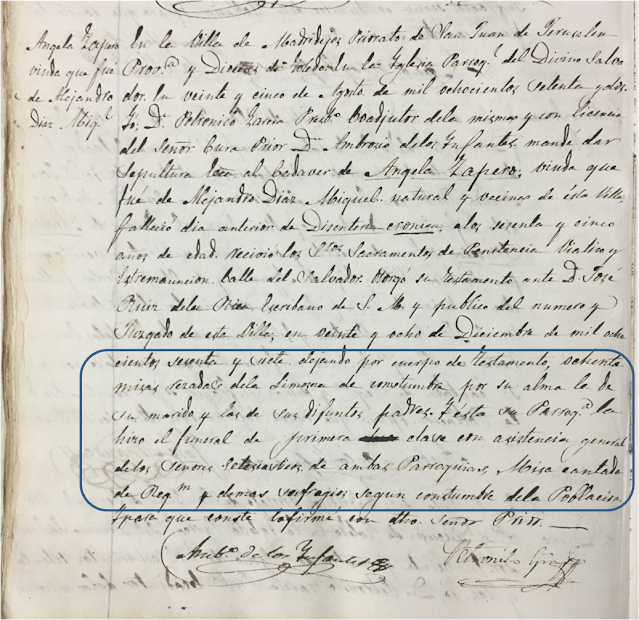 Angela Zapero
viuda que fué
de Alejandro
Diaz Mig.l
En la Villa de Madridejos Priorato de San Juan de Jerusalen
Prov.a y Diocesis de Toledo. En la Yglesia Parroq.l del Divino Salva
dor. En veinte y cinco de Agosto de mil ochocientos setenta y dos.
Yo, D. Petronilo Garcia Presb.o Coadjutor de la misma y con licencia
del Señor Cura Prior D. Ambrosio de los Ynfantes, mandé dar
Sepultura al Cadaver de Angela Zapero, viuda que
fué de Alejandro Diaz Miguel natural y vecina de ésta Villa,
falleció dia anterior de Disenteria cronica, a los sesenta y cinco
años de edad. recivió los S.tos Sacramentos de Penitencia Viatico y
Estremauncion. Calle del Salvador. Otorgó su testamento ante D. José
Ruiz de la Escribano de S. M. y publico del numero y
Juzgado de esta Villa, en veinte y ocho de Diciembre de mil ocho
cientos sesenta y siete dejando por cuerpo de testamento, ochenta
misas rezadas de la limosna de constumbre por su alma la de
su marido y las de sus difuntos padres. Y esta su Parroq.a la
hizo el funeral de primera clase con asistencia general
de los Señores Eclesiasticos de ambas Parroquias, Misa cantada
de Req.m y demas sufragios segun constumbre de la Poblacion.
Y para que conste lo firmé con dho. Señor Prior.
Amb.o de los Ynfantes
Petronilo Garcia